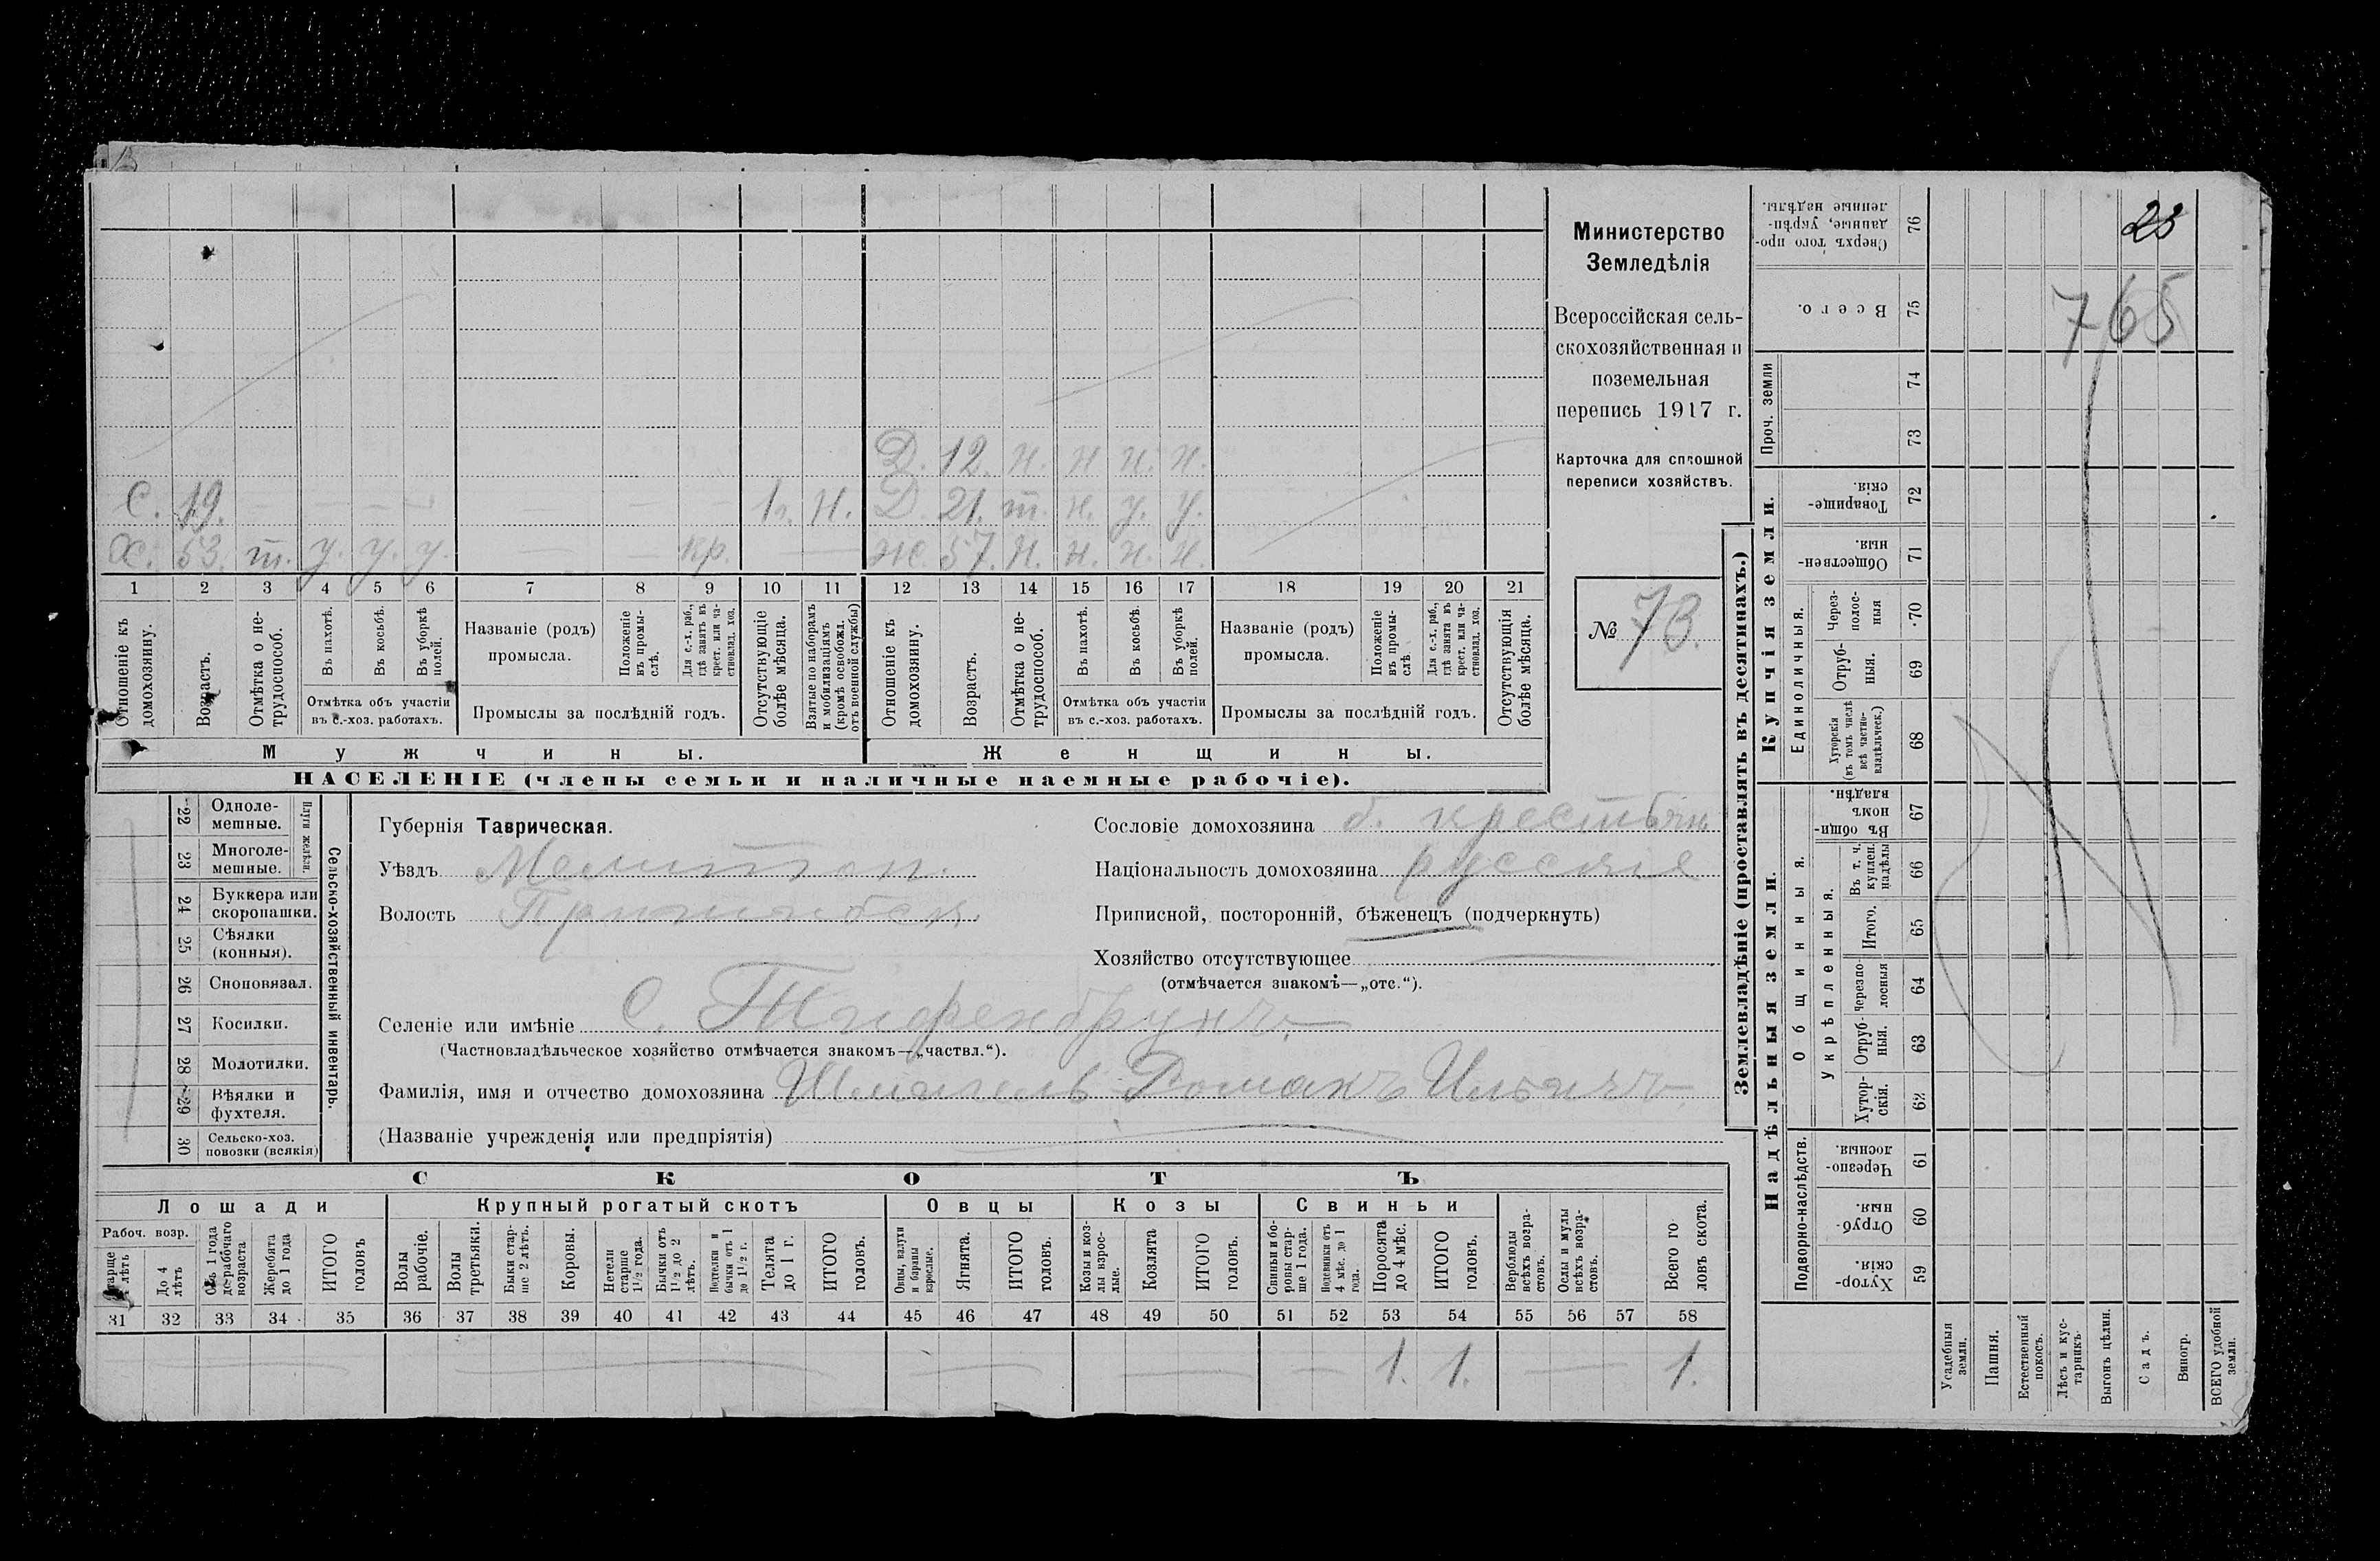 23
765
Министерство
Земледѣлія
Всероссійская сель-
скохозяйственная и
поземельная
перепись 1917 г.
Карточка для сплошной
переписи хозяйствъ.
№ 73.
Д. 12. н. н. н. н.
С. 19. 1 г. н. Д. 21. т. н. у. у.
Х. 53. т. у. у. у. кр. Ж. 57. н. н. н. н.
1 2 3 4 5 6 7 8 9 10 11 12 13 14 15 16 17 18 19 20 21
Отношеніе къ домохозяину.
Возрастъ.
Отмѣтка о не-трудоспособ.
Въ пахотѣ.
Въ косьбѣ.
Въ уборкѣ полей.
Отмѣтка объ участіи въ с.-хоз. работахъ.
Названіе (родъ) промысла.
Положеніе въ промы-слѣ.
Для с.-х. раб., гдѣ занятъ въ крест. или ча-стновлад. хоз.
Промыслы за послѣдній годъ.
Отсутствующіе болѣе мѣсяца.
Взятые по наборамъ и мобилизаціямъ (кромѣ освобожд. отъ военной службы)
Отношеніе къ домохозяину.
Возрастъ.
Отмѣтка о не-трудоспособ.
Въ пахотѣ.
Въ косьбѣ.
Въ уборкѣ полей.
Отмѣтка объ участіи въ с.-хоз. работахъ.
Названіе (родъ) промысла.
Положеніе въ промы-слѣ.
Для с.-х. раб., гдѣ занята въ крест. или ча-стновлад. хоз.
Промыслы за послѣдній годъ.
Отсутствующія болѣе мѣсяца.
Мужчины. Женщины.
НАСЕЛЕНІЕ (члены семьи и наличные наемные рабочіе).
22 Одноле-мешные.
23 Многоле-мешные.
Плуги желѣзн.
24 Буккера или скоропашки.
25 Сѣялки (конныя).
26 Сноповязал.
27 Косилки.
28 Молотилки.
29 Вѣялки и фухтеля.
30 Сельско-хоз. повозки (всякія)
Сельско-хозяйственный инвентарь.
Губернія Таврическая.
Уѣздъ Мелитоп.
Волость
Селеніе или имѣніе с. Тифенбрунъ
(Частновладѣльческое хозяйство отмѣчается знакомъ—„частвл.“).
Фамилія, имя и отчество домохозяина Шмагель Романъ Ильичъ
(Названіе учрежденія или предпріятія)
Сословіе домохозяина б. крестьян
Національность домохозяина русскіе
Приписной, посторонній, бѣженецъ (подчеркнуть)
Хозяйство отсутствующее
(отмѣчается знакомъ—„отс.“).
СКОТЪ
Лошади Крупный рогатый скотъ Овцы Козы Свиньи
Рабоч. возр.
Старше 4 лѣтъ
До 4 лѣтъ
Отъ 1 года до рабочаго возраста
Жеребята до 1 года
ИТОГО головъ
Волы рабочіе.
Волы третьяки.
Быки стар-ше 2 лѣтъ.
Коровы.
Нетели старше 1½ года.
Бычки отъ 1½ до 2 лѣтъ.
Подтелки и бычки отъ 1 до 1½ г.
Телята до 1 г.
ИТОГО головъ.
Овцы, валухи и бараны взрослые.
Ягнята.
ИТОГО головъ.
Козы и коз-лы взрос-лые.
Козлята
ИТОГО головъ.
Свиньи и бо-ровы стар-ше 1 года.
Подсвинки отъ 4 мѣс. до 1 года.
Поросята до 4 мѣс.
ИТОГО головъ.
Верблюды всѣхъ возра-стовъ.
Ослы и мулы всѣхъ возра-стовъ.
Всего го-ловъ скота.
31 32 33 34 35 36 37 38 39 40 41 42 43 44 45 46 47 48 49 50 51 52 53 54 55 56 57 58
1. 1. 1.
Землевладѣніе (проставлять въ десятинахъ.)
Купчія земли.
Надѣльныя земли.
Сверхъ того про-данные, укрѣп-ленные надѣлы. 76
Всего. 75
Проч. земли 74 73
Товарище-скія. 72
Обществен-ныя. 71
Единоличныя.
Через-полос-ныя 70
Отруб-ныя. 69
Хуторскія (въ томъ числѣ всѣ частно-владѣльческ.) 68
Общинныя.
Въ общин-номъ владѣн. 67
Укрѣпленныя.
Въ т. ч. куплен. надѣлы 66
Итого. 65
Черезпо-лосныя 64
Отруб-ныя. 63
Хутор-скія. 62
Подворно-наслѣдств.
Черезпо-лосныя. 61
Отруб-ныя. 60
Хутор-скія. 59
Усадебныя земли.
Пашня.
Естественный покосъ.
Лѣсъ и кус-тарникъ.
Выгонъ цѣлин.
Садъ.
Виногр.
ВСЕГО удобной земли.